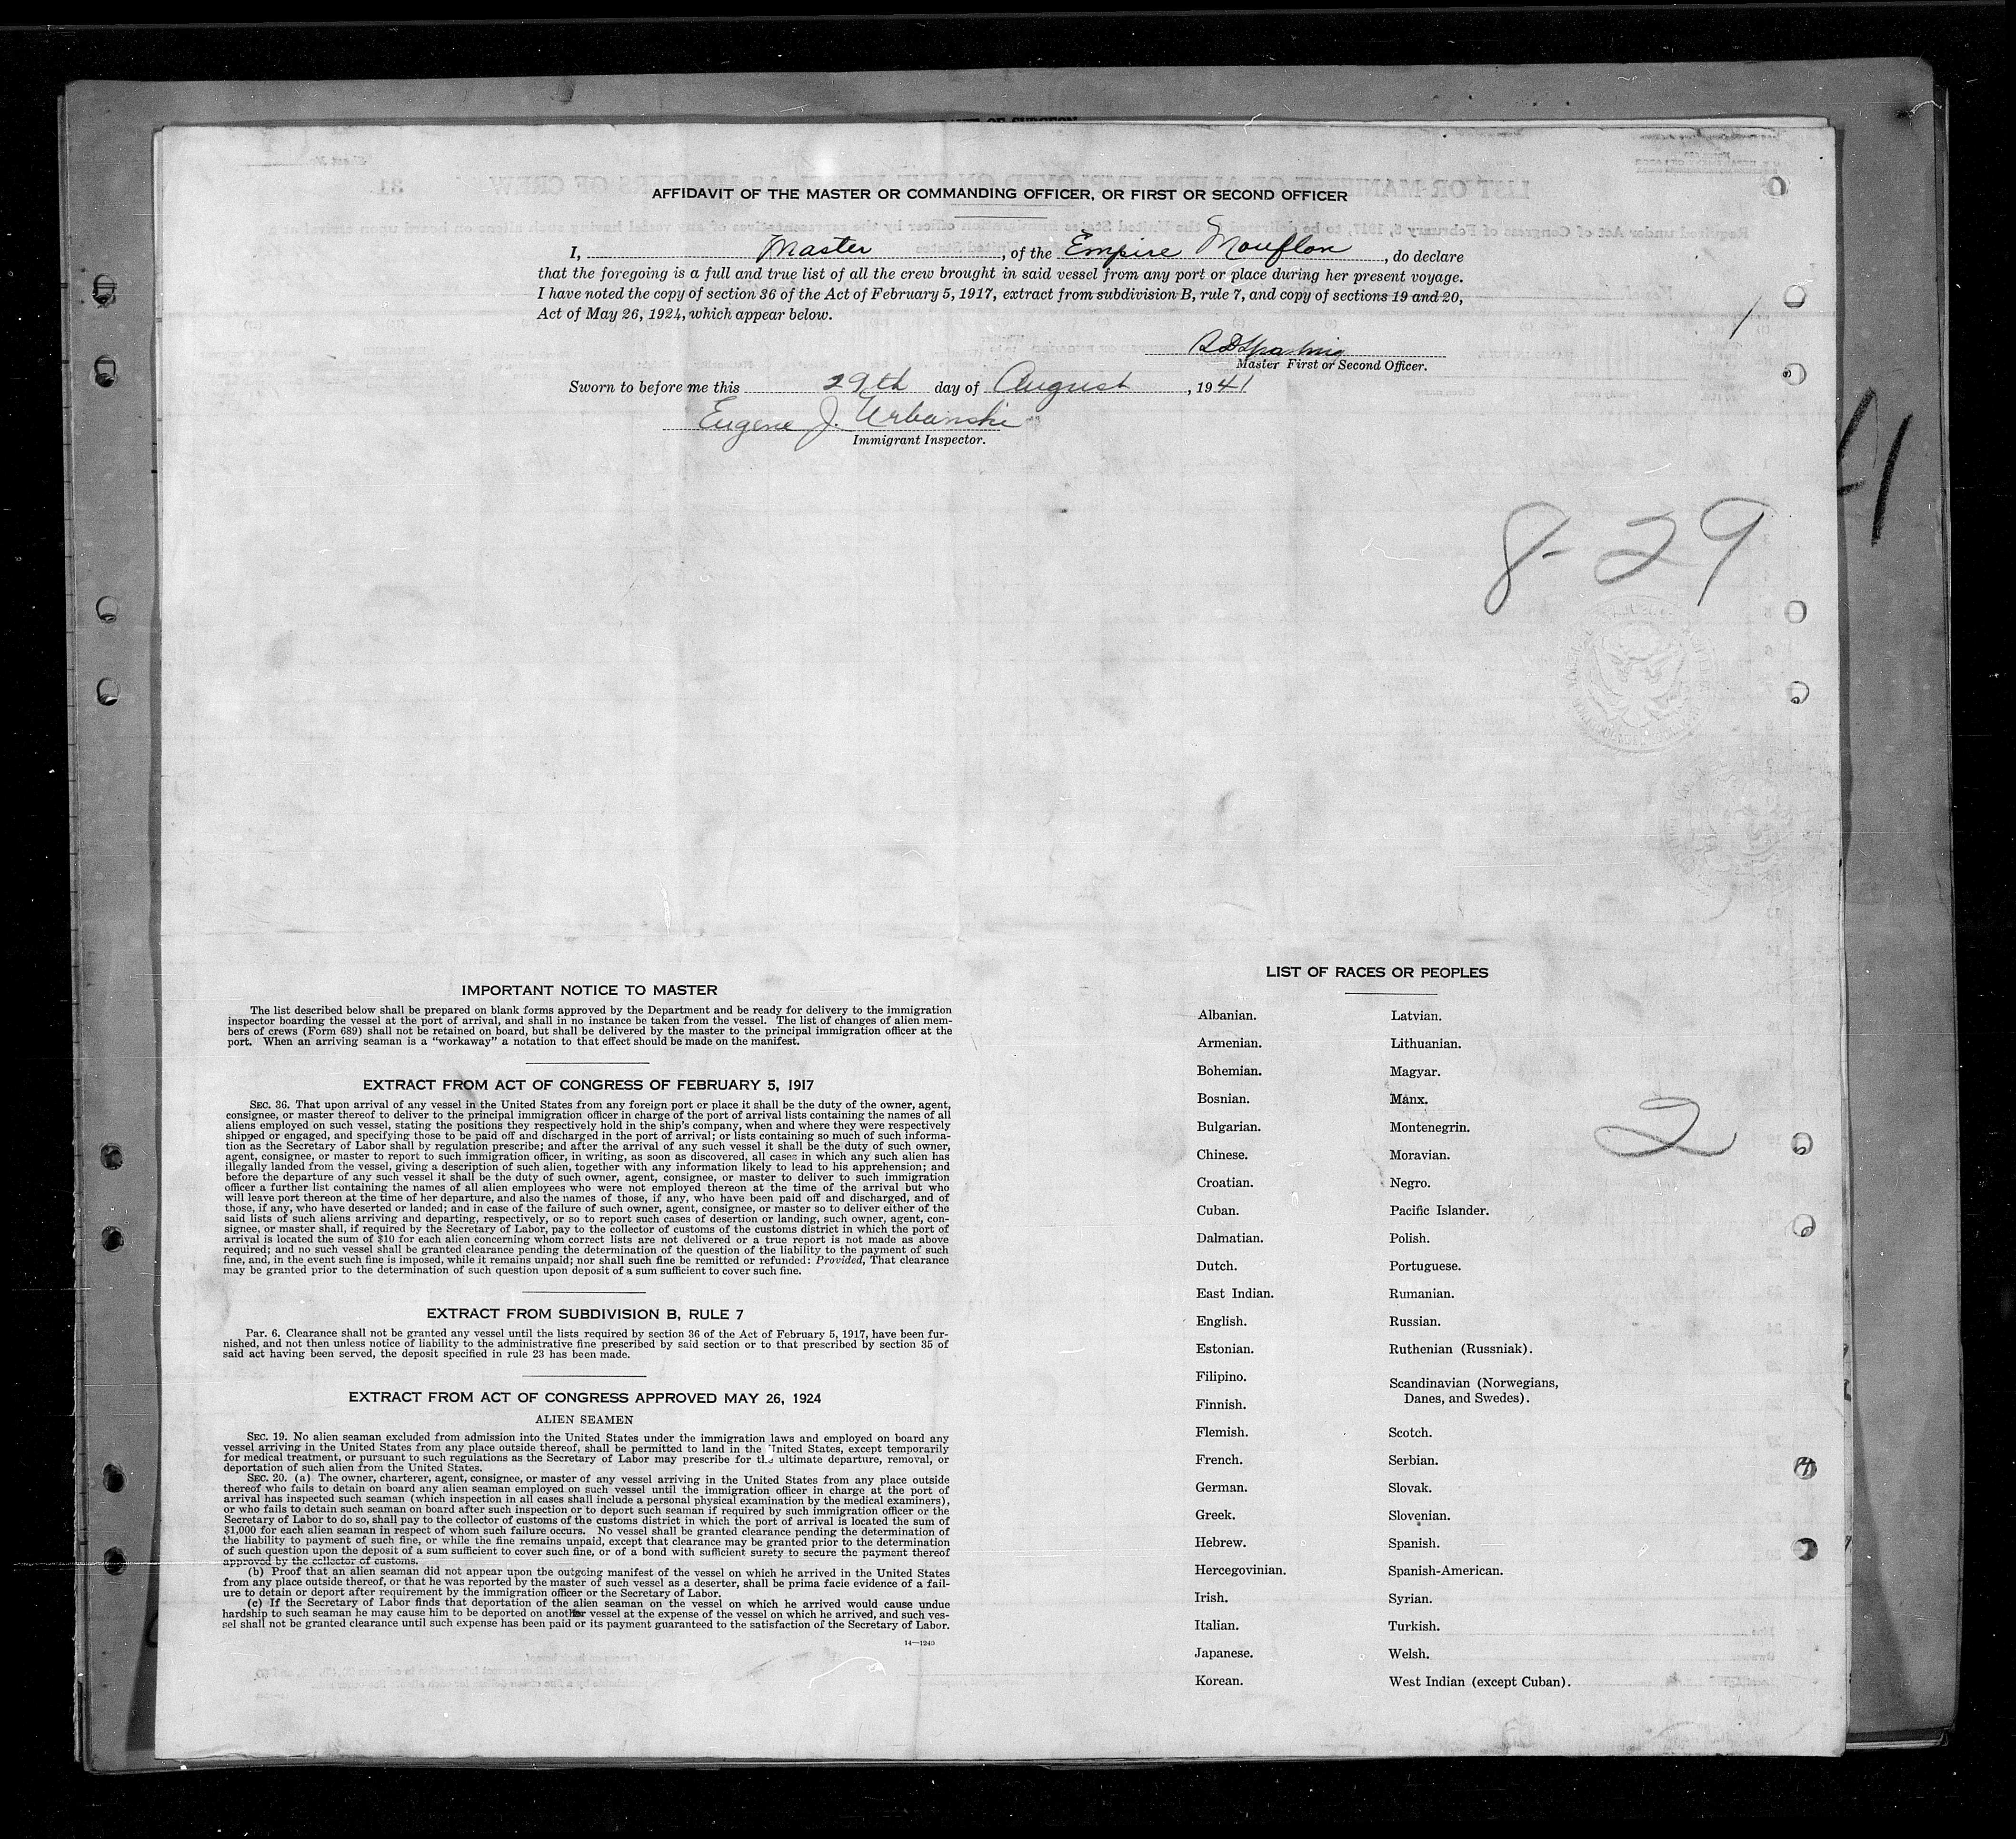 AFFIDAVIT OF THE MASTER OR COMMANDING OFFICER, OR FIRST OR SECOND OFFICER
I, Master, of the Empire Mouflon, do declare
that the foregoing is a full and true list of all the crew brought in said vessel from any port or place during her present voyage.
I have noted the copy of section 36 of the Act of February 5, 1917, extract from subdivision B, rule 7, and copy of sections 19 and 20,
Act of May 26, 1924, which appear below.
Master First or Second Officer.
Sworn to before me this 29th day of August, 1941
Eugene J. Urbanski
Immigrant Inspector.
8-29
IMPORTANT NOTICE TO MASTER
The list described below shall be prepared on blank forms approved by the Department and be ready for delivery to the immigration
inspector boarding the vessel at the port of arrival, and shall in no instance be taken from the vessel. The list of changes of alien mem-
bers of crews (Form 689) shall not be retained on board, but shall be delivered by the master to the principal immigration officer at the
port. When an arriving seaman is a "workaway" a notation to that effect should be made on the manifest.
EXTRACT FROM ACT OF CONGRESS OF FEBRUARY 5, 1917
SEC. 36. That upon arrival of any vessel in the United States from any foreign port or place it shall be the duty of the owner, agent,
consignee, or master thereof to deliver to the principal immigration officer in charge of the port of arrival lists containing the names of all
aliens employed on such vessel, stating the positions they respectively hold in the ship's company, when and where they were respectively
shipped or engaged, and specifying those to be paid off and discharged in the port of arrival; or lists containing so much of such informa-
tion as the Secretary of Labor shall by regulation prescribe; and after the arrival of any such vessel it shall be the duty of such owner,
agent, consignee, or master to report to such immigration officer, in writing, as soon as discovered, all cases in which any such alien has
illegally landed from the vessel, giving a description of such alien, together with any information likely to lead to his apprehension; and
before the departure of any such vessel it shall be the duty of such owner, agent, consignee, or master to deliver to such immigration
officer a further list containing the names of all alien employees who were not employed thereon at the time of the arrival but who
will leave port thereon at the time of her departure, and also the names of those, if any, who have been paid off and discharged, and of
those, if any, who have deserted or landed; and in case of the failure of such owner, agent, consignee, or master so to deliver either of the
said lists of such aliens arriving and departing, respectively, or so to report such cases of desertion or landing, such owner, agent, con-
signee, or master shall, if required by the Secretary of Labor, pay to the collector of customs of the customs district in which the port of
arrival is located the sum of $10 for each alien concerning whom correct lists are not delivered or a true report is not made as above
required; and no such vessel shall be granted clearance pending the determination of the question of the liability to the payment of such
fine, and, in the event such fine is imposed, while it remains unpaid; nor shall such fine be remitted or refunded: Provided, That clearance
may be granted prior to the determination of such question upon deposit of a sum sufficient to cover such fine.
EXTRACT FROM SUBDIVISION B, RULE 7
Par. 6. Clearance shall not be granted any vessel until the lists required by section 36 of the Act of February 5, 1917, have been fur-
nished, and not then unless notice of liability to the administrative fine prescribed by said section or to that prescribed by section 35 of
said act having been served, the deposit specified in rule 23 has been made.
EXTRACT FROM ACT OF CONGRESS APPROVED MAY 26, 1924
ALIEN SEAMEN
SEC. 19. No alien seaman excluded from admission into the United States under the immigration laws and employed on board any
vessel arriving in the United States from any place outside thereof, shall be permitted to land in the United States, except temporarily
for medical treatment, or pursuant to such regulations as the Secretary of Labor may prescribe for the ultimate departure, removal, or
deportation of such alien from the United States.
SEC. 20. (a) The owner, charterer, agent, consignee, or master of any vessel arriving in the United States from any place outside
thereof who fails to detain on board any alien seaman employed on such vessel until the immigration officer in charge at the port of
arrival has inspected such seaman (which inspection in all cases shall include a personal physical examination by the medical examiners),
or who fails to detain such seaman on board after such inspection or to deport such seaman if required by such immigration officer or the
Secretary of Labor to do so, shall pay to the collector of customs of the customs district in which the port of arrival is located the sum of
$1,000 for each alien seaman in respect of whom such failure occurs. No vessel shall be granted clearance pending the determination of
the liability to payment of such fine, or while the fine remains unpaid, except that clearance may be granted prior to the determination
of such question upon the deposit of a sum sufficient to cover such fine, or of a bond with sufficient surety to secure the payment thereof
approved by the collector of customs.
(b) Proof that an alien seaman did not appear upon the outgoing manifest of the vessel on which he arrived in the United States
from any place outside thereof, or that he was reported by the master of such vessel as a deserter, shall be prima facie evidence of a fail-
ure to detain or deport after requirement by the immigration officer or the Secretary of Labor.
(c) If the Secretary of Labor finds that deportation of the alien seaman on the vessel on which he arrived would cause undue
hardship to such seaman he may cause him to be deported on another vessel at the expense of the vessel on which he arrived, and such ves-
sel shall not be granted clearance until such expense has been paid or its payment guaranteed to the satisfaction of the Secretary of Labor.
14—1240
LIST OF RACES OR PEOPLES
Albanian.
Armenian.
Bohemian.
Bosnian.
Bulgarian.
Chinese.
Croatian.
Cuban.
Dalmatian.
Dutch.
East Indian.
English.
Estonian.
Filipino.
Finnish.
Flemish.
French.
German.
Greek.
Hebrew.
Hercegovinian.
Irish.
Italian.
Japanese.
Korean.
Latvian.
Lithuanian.
Magyar.
Manx.
Montenegrin.
Moravian.
Negro.
Pacific Islander.
Polish.
Portuguese.
Rumanian.
Russian.
Ruthenian (Russniak).
Scandinavian (Norwegians,
Danes, and Swedes).
Scotch.
Serbian.
Slovak.
Slovenian.
Spanish.
Spanish-American.
Syrian.
Turkish.
Welsh.
West Indian (except Cuban).
2